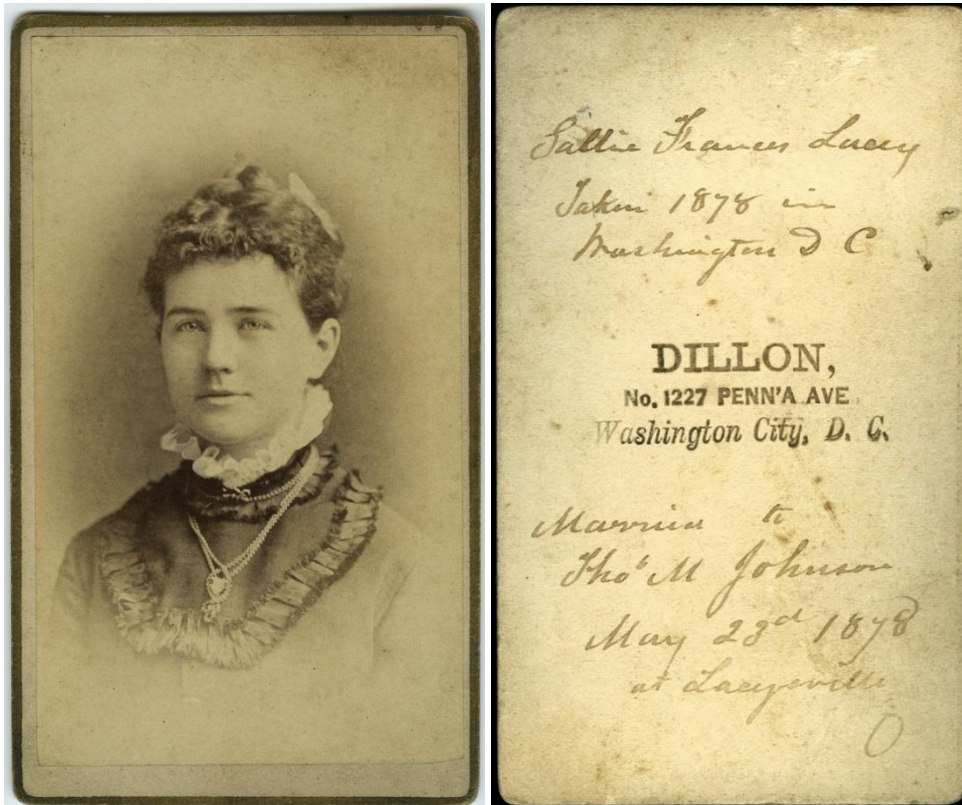 Sallie Frances Lacey
Taken 1878 in
Washington D C
DILLON,
No. 1227 PENN'A AVE.
Washington City, D. C.
Married to
Thoˢ M Johnson
May 23d 1878
at Laceyville
O